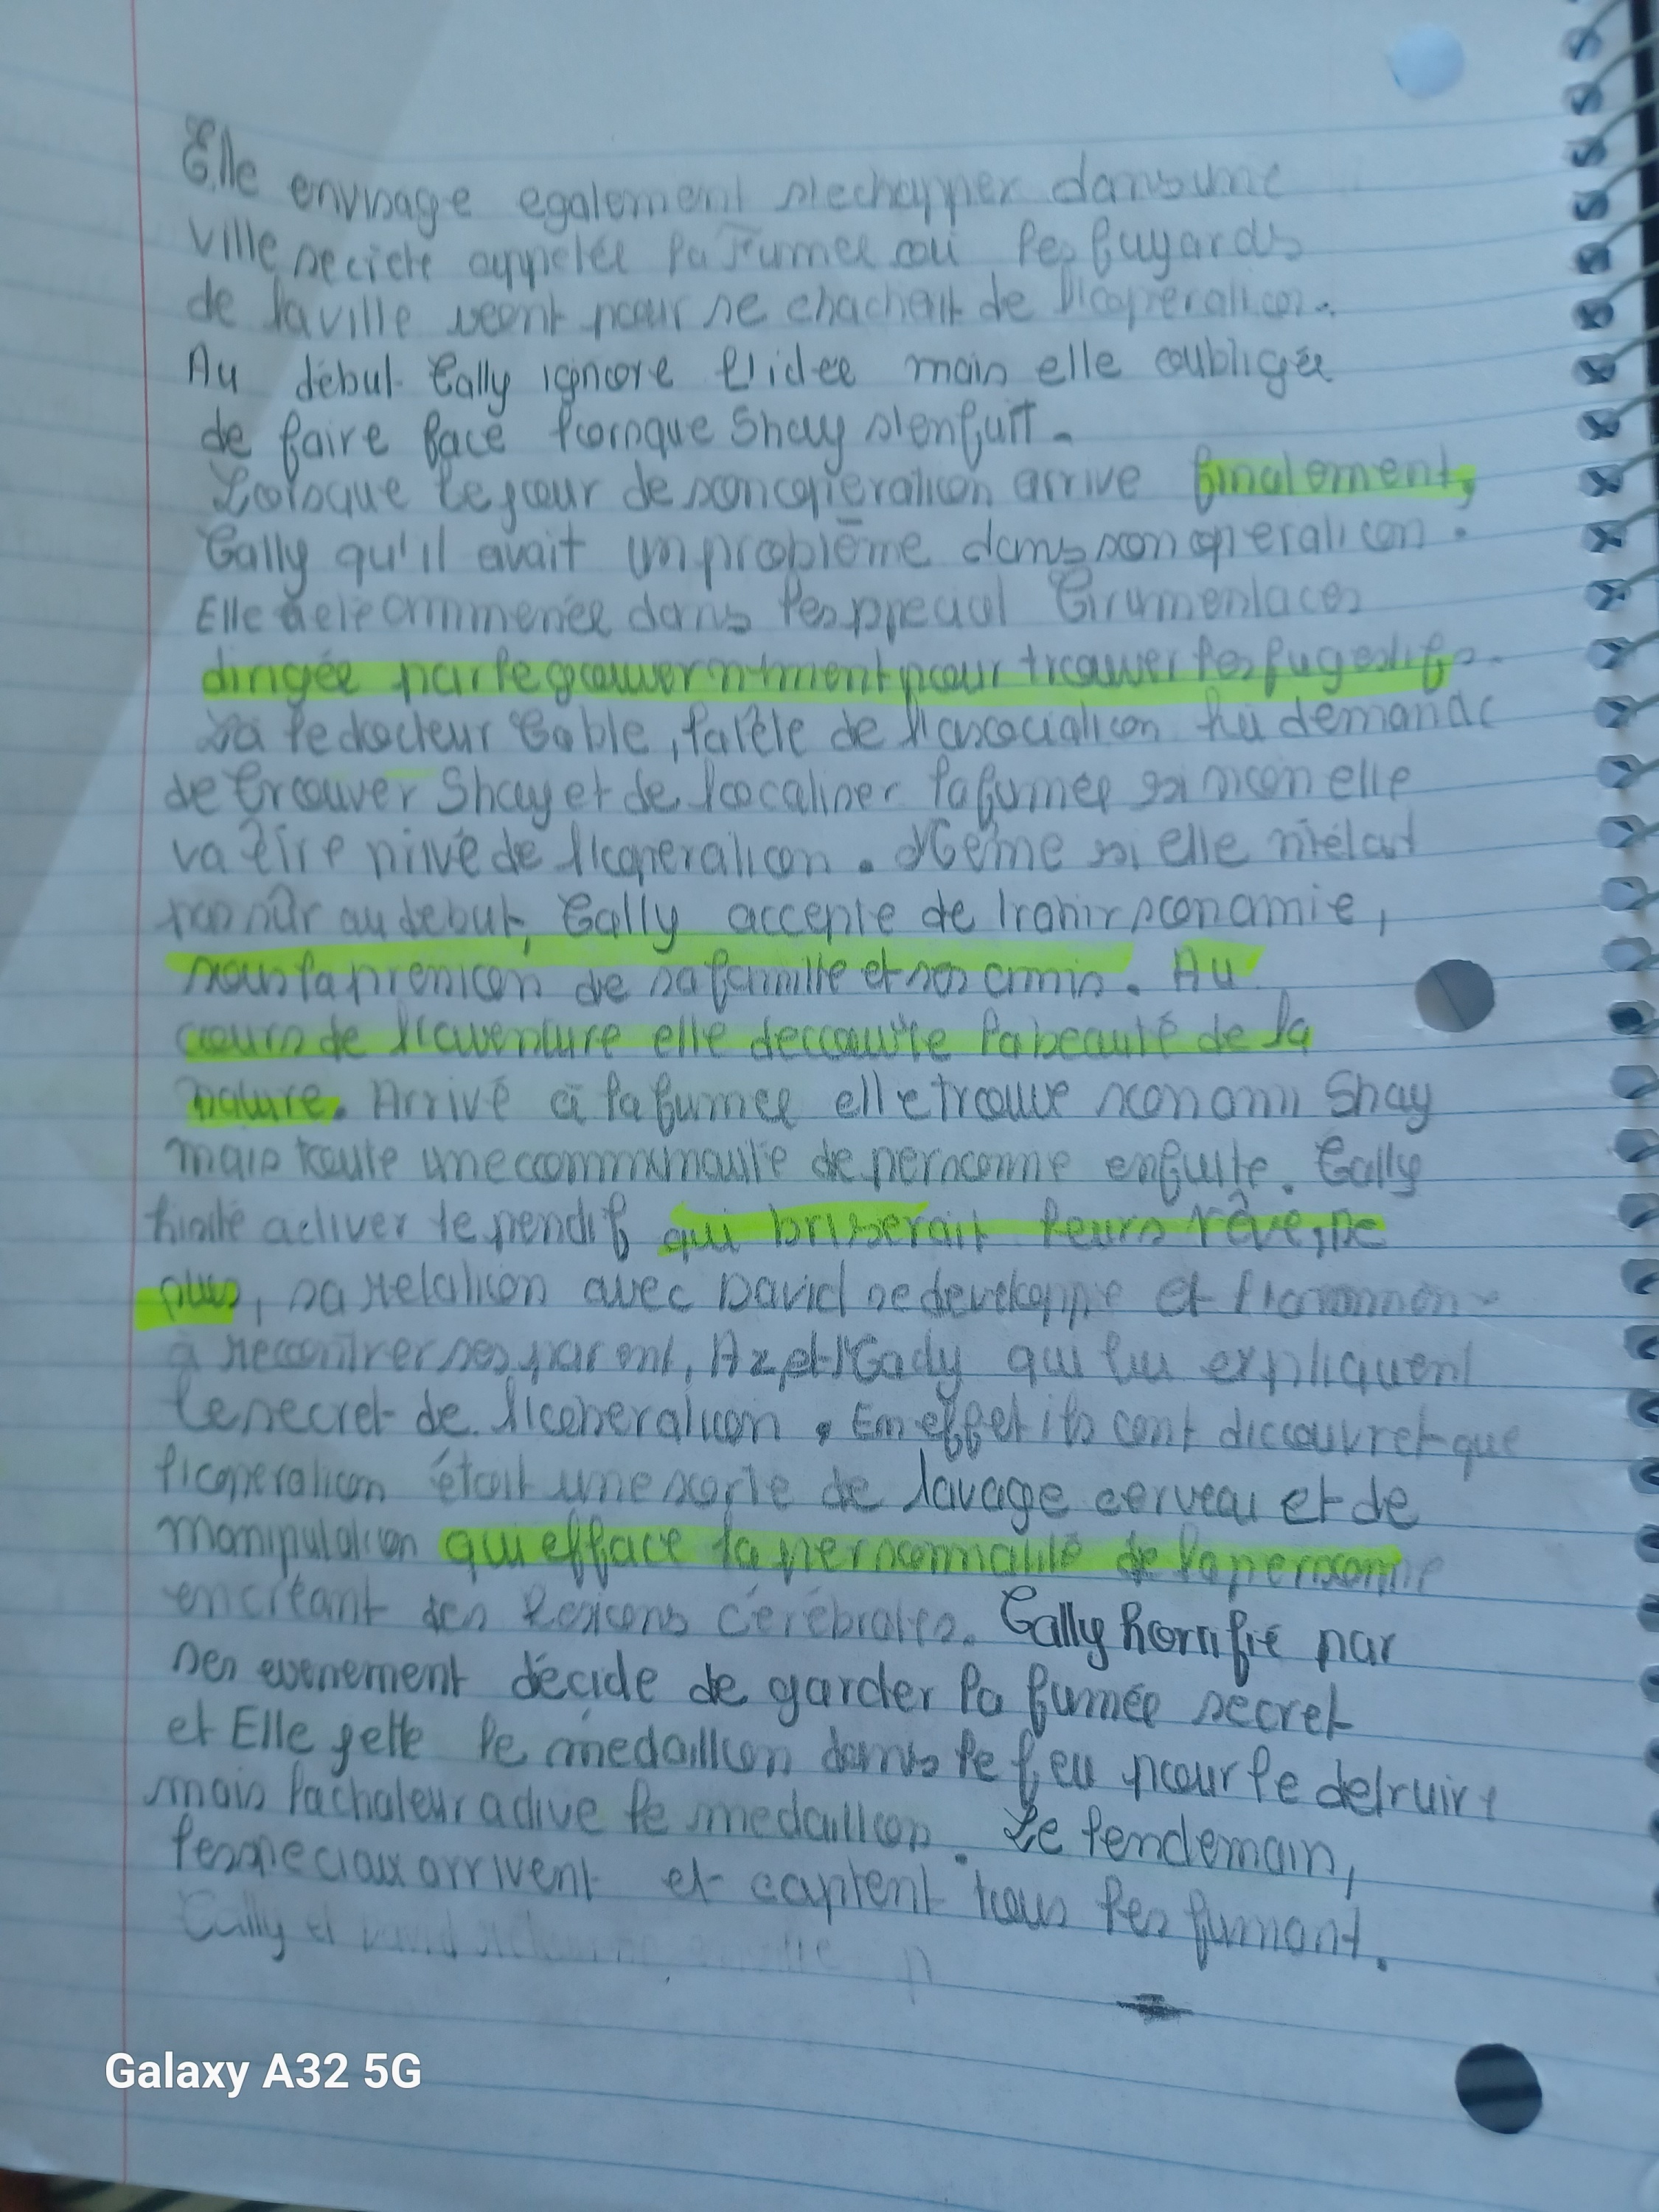 Elle envisage egalement s'echapper dans une
ville secrete appelée la Fumee où les fuyards
de la ville vont pour se chachent de l'operation.
Au début Cally ignore l'idee mais elle oubligée
de faire face lorsque Shay s'enfuit.
Lorsque le jour de son operation arrive finalement,
Cally qu'il avait un problème dans son operation.
Elle a été ammenée dans les special
dirigée par le gouvernement pour trouver les
Là le docteur Cable, la tête de l'asociation lui demande
de trouver Shay et de localiser la fumée si non elle
va être privé de l'operation. Même si elle n'était
pas sûr au debut, Cally accepte de trahir son amie,
sous la presion de sa famille et ses amis. Au
cours de l'aventure elle decouvre la beauté de la
nature. Arrivé à la fumee elle trouve son ami Shay
mais toute une communauté de personne enfuite. Cally
hisité activer le pendif qui briserait leurs rêve, De
plus, sa relation avec David se developpe et
à recontrer ses parent, Az et Mady qui lui expliquent
le secret de l'operation. En effet ils ont discouvret que
l'operation était une sorte de lavage cerveau et de
manipulation qui efface la personnalité de la personne
en créant des lesions cérébrales. Cally horrifié par
ses evenement décide de garder la fumée secret
et Elle jette le medaillon dans le feu pour le detruire
mais la chaleur active le medaillon. Le lendemain,
les speciaux arrivent et captent tous les fumant.
Cally et David
Galaxy A32 5G